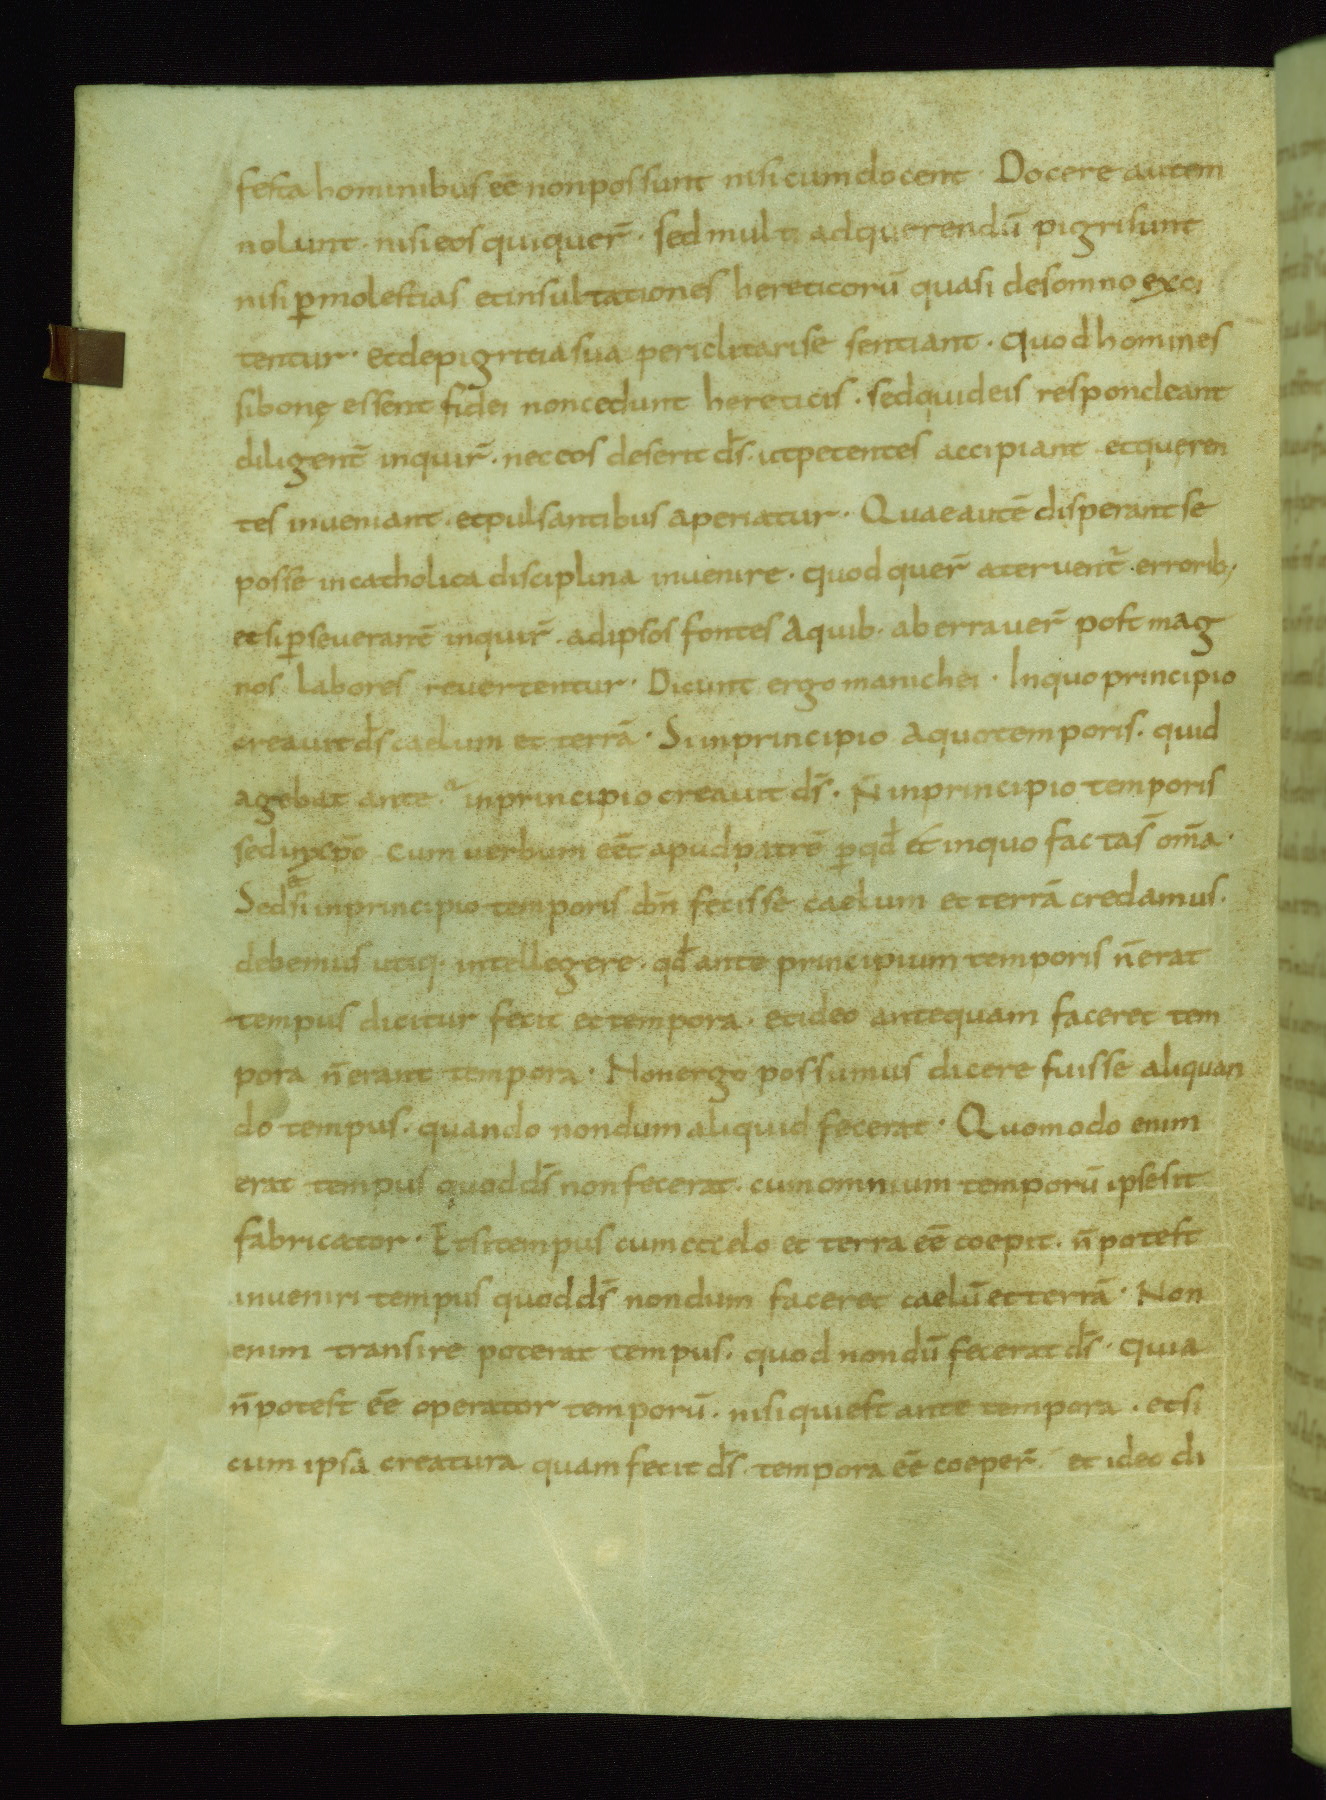 festa hominibus eē non possunt nisi cum docent · Docere autem
nolunt · nisi eos qui quer̄ · sed multi ad querendū pigri sunt
nisi ꝑ molestias et insultationes hereticorū quasi de somno exci
tentur · et de pigritia sua periclitari se sentiant · quod homines
si bonę essent fidei non cedunt hereticis · sed quid eis respondeant
diligent̄ inquir̄ · nec eos deserit d̄s · ut petentes accipiant et queren
tes inveniant · et pulsantibus aperiatur · Quae autē disperant se
posse in catholica disciplina invenire · quod quer̄ atervent̄ · errorib;
et si ꝑseverant̄ inquir̄ · ad ipsos fontes a quib· aberraver̄ post mag
nos labores revertentur · Dicunt ergo manichei · In quo principio
creavit d̄s caelum et terrā · Si in principio aquo temporis · quid
agebat ante in principio creavit d̄s · N̄ in principio temporis
sed in xp̄o cum verbum eēt apud patrē ꝑ qd̄ et in quo facta s̄ om̄a ·
Sed si in principio temporis dn̄ fecisse caelum et terrā credamus ·
debemus utiq· intellegere · qd̄ ante principium temporis n̄ erat
tempus dicitur fecit et tempora · et ideo antequam faceret tem
pora n̄ erant tempora · Non ergo possumus dicere fuisse aliquan
do tempus · quando nondum aliquid fecerat · Quomodo enim
erat tempus quod d̄s non fecerat · cum omnium temporū ipse sit
fabricator · Et si tempus cum cęlo et terra eē coepit · n̄ potest
inveniri tempus quod d̄s nondum faceret caelū et terrā · Non
enim transire poterat tempus · quod nondū fecerat d̄s · quia
n̄ potest eē operator temporū · nisi qui est ante tempora · et si
cum ipsa creatura quam fecit d̄s · tempora eē coeper̄ · et ideo di